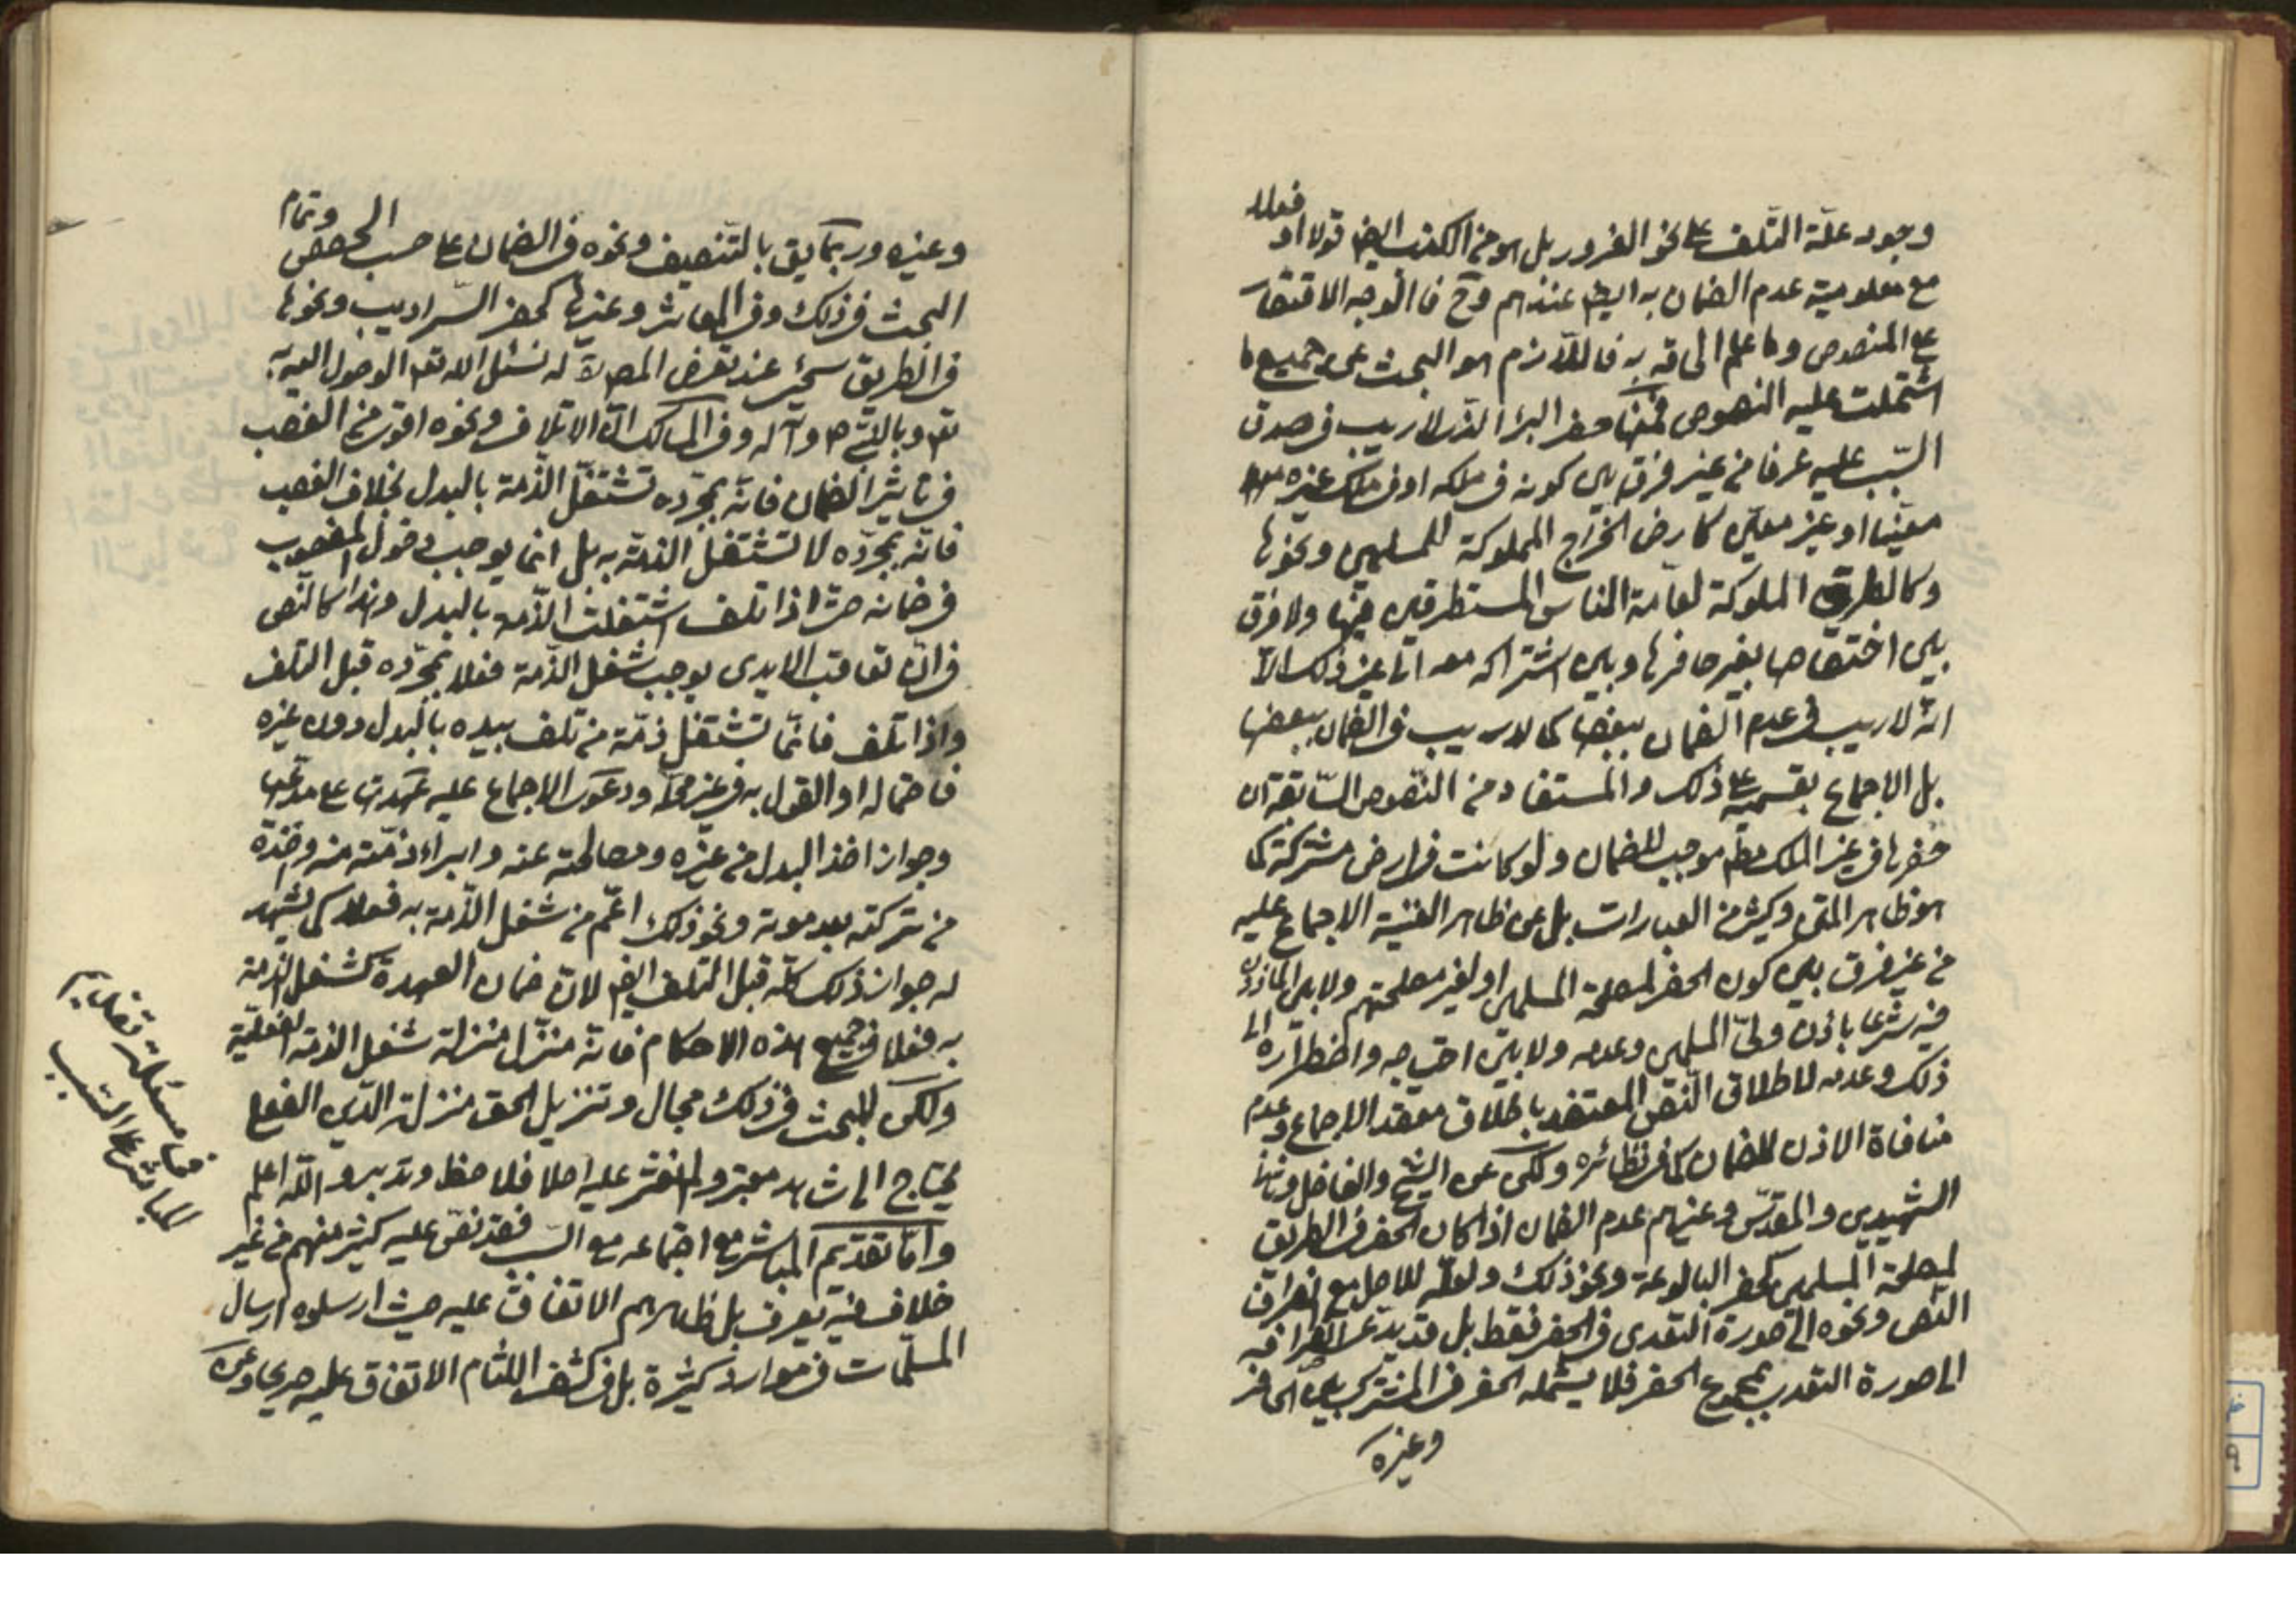 وجود علّة التّلف على نحو الغرور بل هو من الكذب ايضا قولا او فعلا
مع معلومية عدم الضمان به ايضا عندهم وح فالوجه الاقتصار
على المنصوص وما علم الحاقه به فاللازم هو البحث عن جميع ما
اشتملت عليه النصوص فمنها حفر البئر الذى لا ريب فى صدق
السّبب عليه عرفا من غير فرق بين كونه فى ملكه او فى ملك غيره
معيّنا او غير معيّن كارض الخراج المملوكة للمسلمين ونحوها
وكالطرق المملوكة لعامة الناس المستطرقين فيها ولا فرق
بين اختصاصها بغير حافرها وبين اشتراكه معه الى غير ذلك الّا
انّه لا ريب فى عدم الضمان ببعضها كما لا ريب فى الضمان ببعضها
بل الاجماع بقسميه على ذلك والمستفاد من النّصوص السّابقة ان
حفرها فى غير الملك مط موجب للضمان ولو كانت فى ارض مشتركة كما
هو ظاهر المتن وكثير من العبارات بل عن ظاهر الغنية الاجماع عليه
من غير فرق بين كون الحفر لمصلحة المسلمين او لغير مصلحتهم ولا بين الماذون
فيه شرعا باذن ولىّ المسلمين وعدمه ولا بين احتياجه واضطراره الى
ذلك وعدمه لاطلاق النّص المعتضد باطلاق معقد الاجماع وعدم
منافاة الاذن للضمان كما فى نظائره ولكن عن الشيخ والفاضل وثانى
الشهيدين والمقدّس وغيرهم عدم الضمان اذا كان الحفر فى الطريق
لمصلحة المسلمين كحفر البالوعة ونحو ذلك ولعلّه للاصل مع انصراف
النّص ونحوه الى صورة التعدى فى الحفر فقط بل قد يدعى انصرافه
الى صورة التعدى بمجموع الحفر فلا يشمله الحفر فى المشترك بين الحافر
وغيره
وغيره وربما يق بالتّنصيف ونحوه فى الضمان على حسب الحصص وتمام
البحث فى ذلك وفى المعاثر وغيرها كحفر السّراديب ونحوها
فى الطريق سيجئ عند تعرض المص لا له نسئل الله تعه الوصول اليه
تعه وبالنّبى ص وآله وفى المسالك انّ الاتلاف ونحوه اقوى من الغصب
فى تاثير الضمان فانّه بمجرّده تشتغل الذّمة بالبدل بخلاف الغصب
فانّه بمجرّده لا تشتغل الذمّة به بل انما يوجب دخول المغصوب
فى ضمانه حتى اذا تلف اشتغلت الذّمة بالبدل وهذا كالنّص
فى انّ تعاقب الايدى يوجب شغل الذّمة فعلا بمجرّده قبل التلف
واذا تلف فانّما تشتغل ذمّة من تلف بيده بالبدل دون غيره
فاحتماله او القول به فى غير محلّه ودعوى الاجماع عليه عهدتها على مدّعيها
وجواز اخذ البدل من غيره ومصالحته عنه وابراء ذمّته منه واخذه
من تركته بعد موته ونحو ذلك اعمّ من شغل الذّمة به فعلا كما يشهد
له جواز ذلك كلّه قبل التلف ايضا لانّ ضمان العهدة كشغل الذمة
به فعلا فى جميع هذه الاحكام فانّه منزّل منزلة شغل الذمّة الفعليّة
ولكن للبحث فى ذلك مجال وتنزيل الحق منزلة الدّين الفعلى
يحتاج الى شاهد معتبر ولم نعثر عليه اصلا فلاحظ وتدبر والله اعلم
وامّا تقديم المباشر مع اجتماعه مع السّبب فقد نصّ عليه كثير منهم من غير
خلاف فيه يعرف بل ظاهرهم الاتفاق عليه حيث ارسلوه ارسال
المسلّمات فى موارد كثيرة بل فى كشف اللثام الاتفاق عليه صريحا وعن
فى مسئلة تقديم
المباشر على السّبب